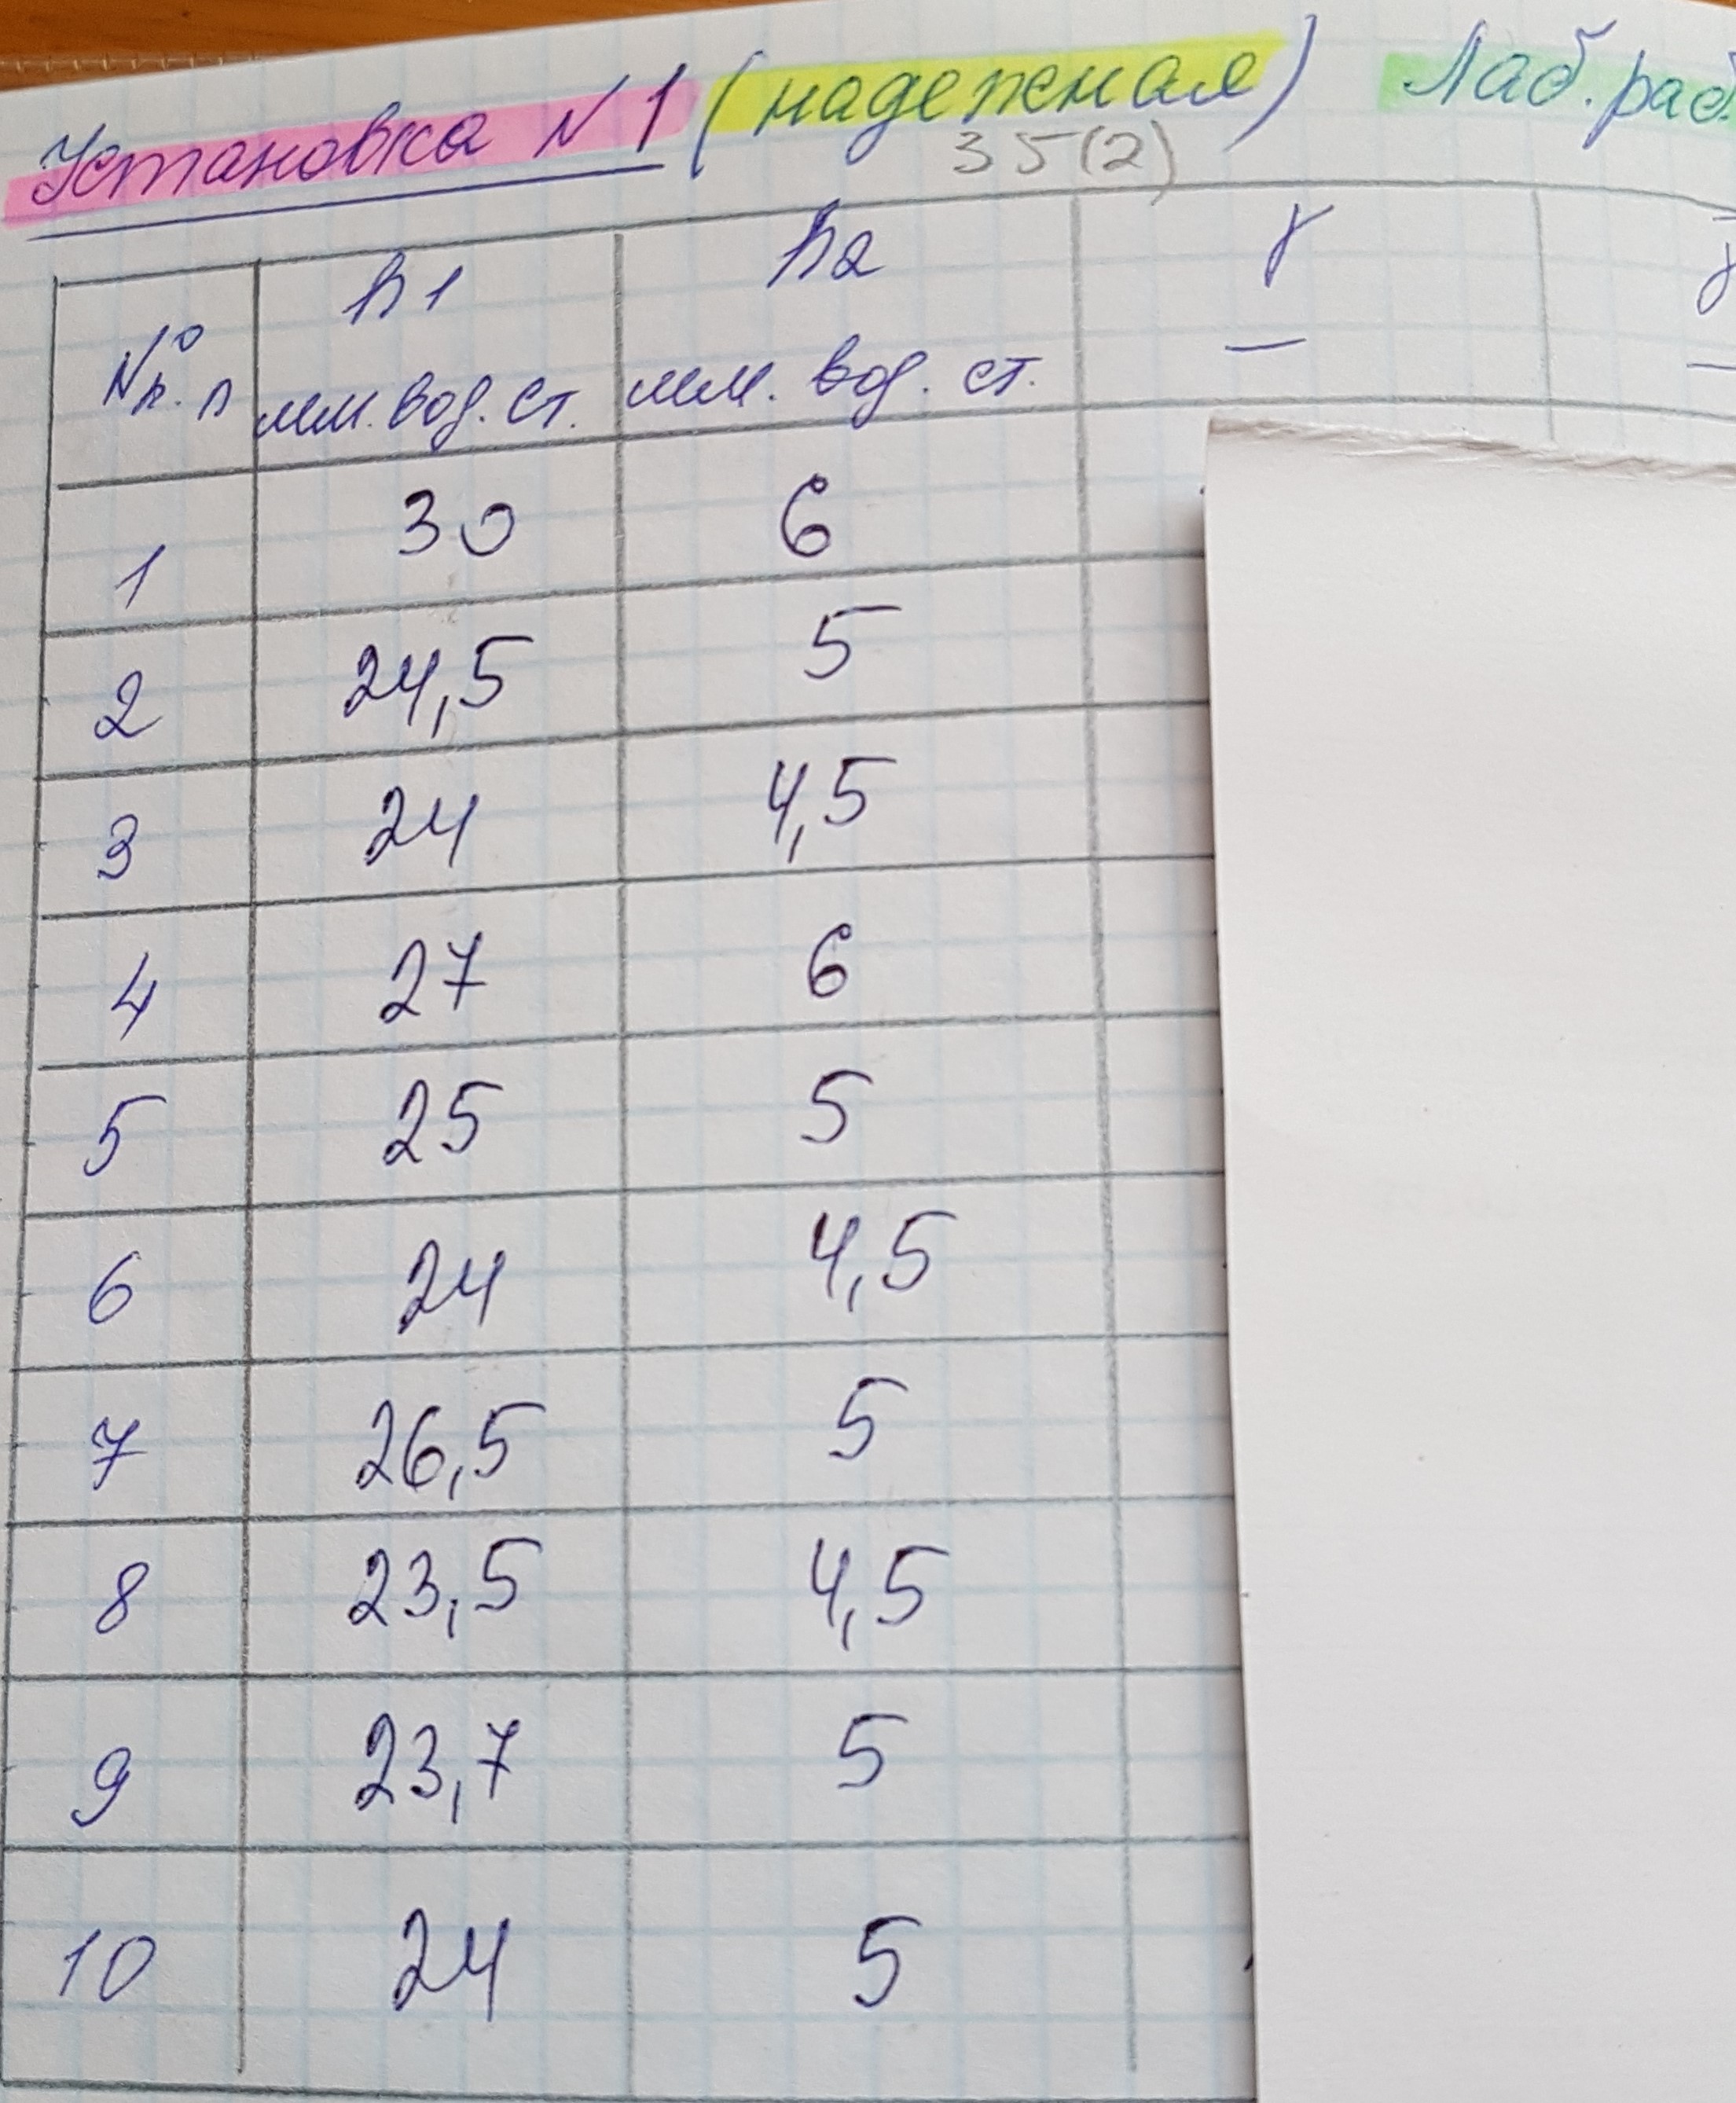 Установка №1 (надежная) Лаб. раб.
35(2)
№ п.п h1 h2 γ γ
мм. вод. ст. мм. вод. ст. — —
1 30 6
2 24,5 5
3 24 4,5
4 27 6
5 25 5
6 24 4,5
7 26,5 5
8 23,5 4,5
9 23,7 5
10 24 5